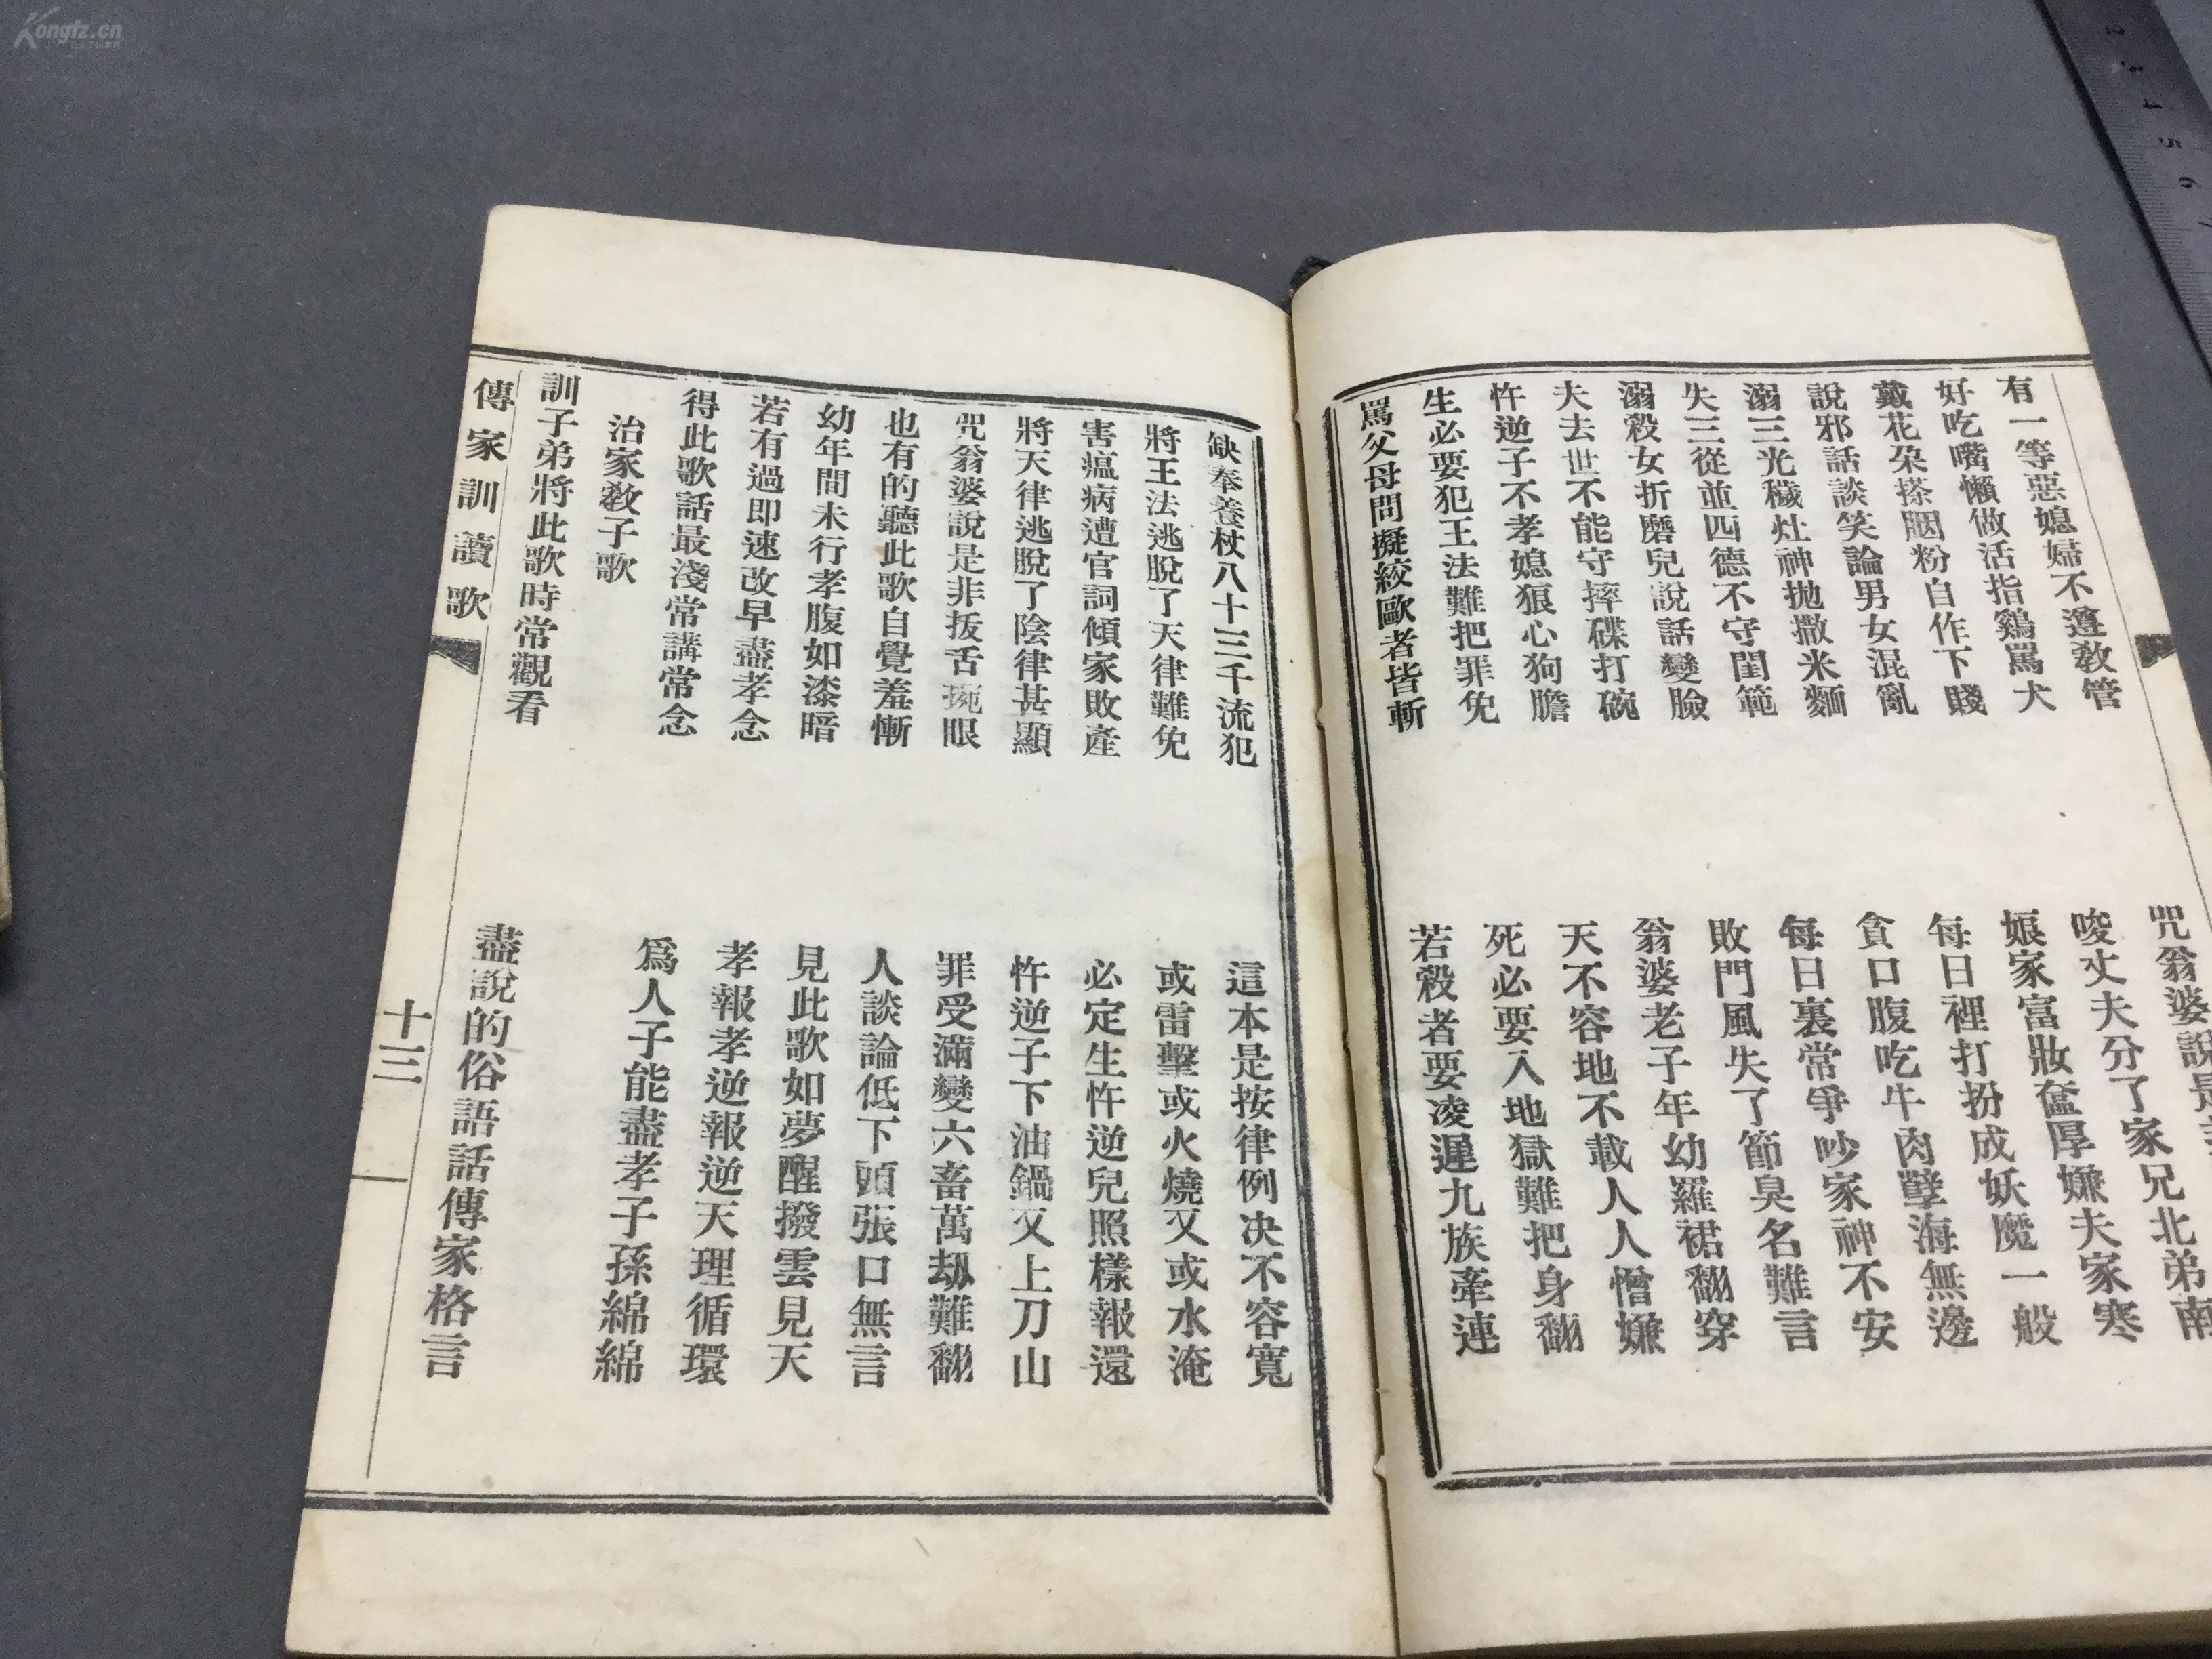 有一等惡媳婦不遵教管
咒翁婆說是
好吃嘴懶做活指鷄罵犬
唆丈夫分了家兄北弟南
戴花朵搽胭粉自作下賤
娘家富妝奩厚嫌夫家寒
說邪話談笑論男女混亂
每日裡打扮成妖魔一般
溺三光穢灶神拋撒米麵
貪口腹吃牛肉孽海無邊
失三從並四德不守閨範
每日裏常爭吵家神不安
溺殺女折磨兒說話變臉
敗門風失了節臭名難言
夫去世不能守摔碟打碗
翁婆老子年幼羅裙翻穿
忤逆子不孝媳狼心狗膽
天不容地不載人人憎嫌
生必要犯王法難把罪免
死必要入地獄難把身翻
罵父母問擬絞歐者皆斬
若殺者要凌遲九族牽連
缺奉養杖八十三千流犯
這本是按律例决不容寬
將王法逃脫了天律難免
或雷擊或火燒又或水淹
害瘟病遭官詞傾家敗產
必定生忤逆兒照樣報還
將天律逃脫了陰律甚顯
忤逆子下油鍋又上刀山
咒翁婆說是非拔舌剜眼
罪受滿變六畜萬刼難翻
也有的聽此歌自覺羞慚
人談論低下頭張口無言
幼年間未行孝腹如漆暗
見此歌如夢醒撥雲見天
若有過即速改早盡孝念
孝報孝逆報逆天理循環
得此歌話最淺常講常念
爲人子能盡孝子孫綿綿
治家教子歌
訓子弟將此歌時常觀看
盡說的俗語話傳家格言
傳家訓讀歌
十三
Kongfz.cn